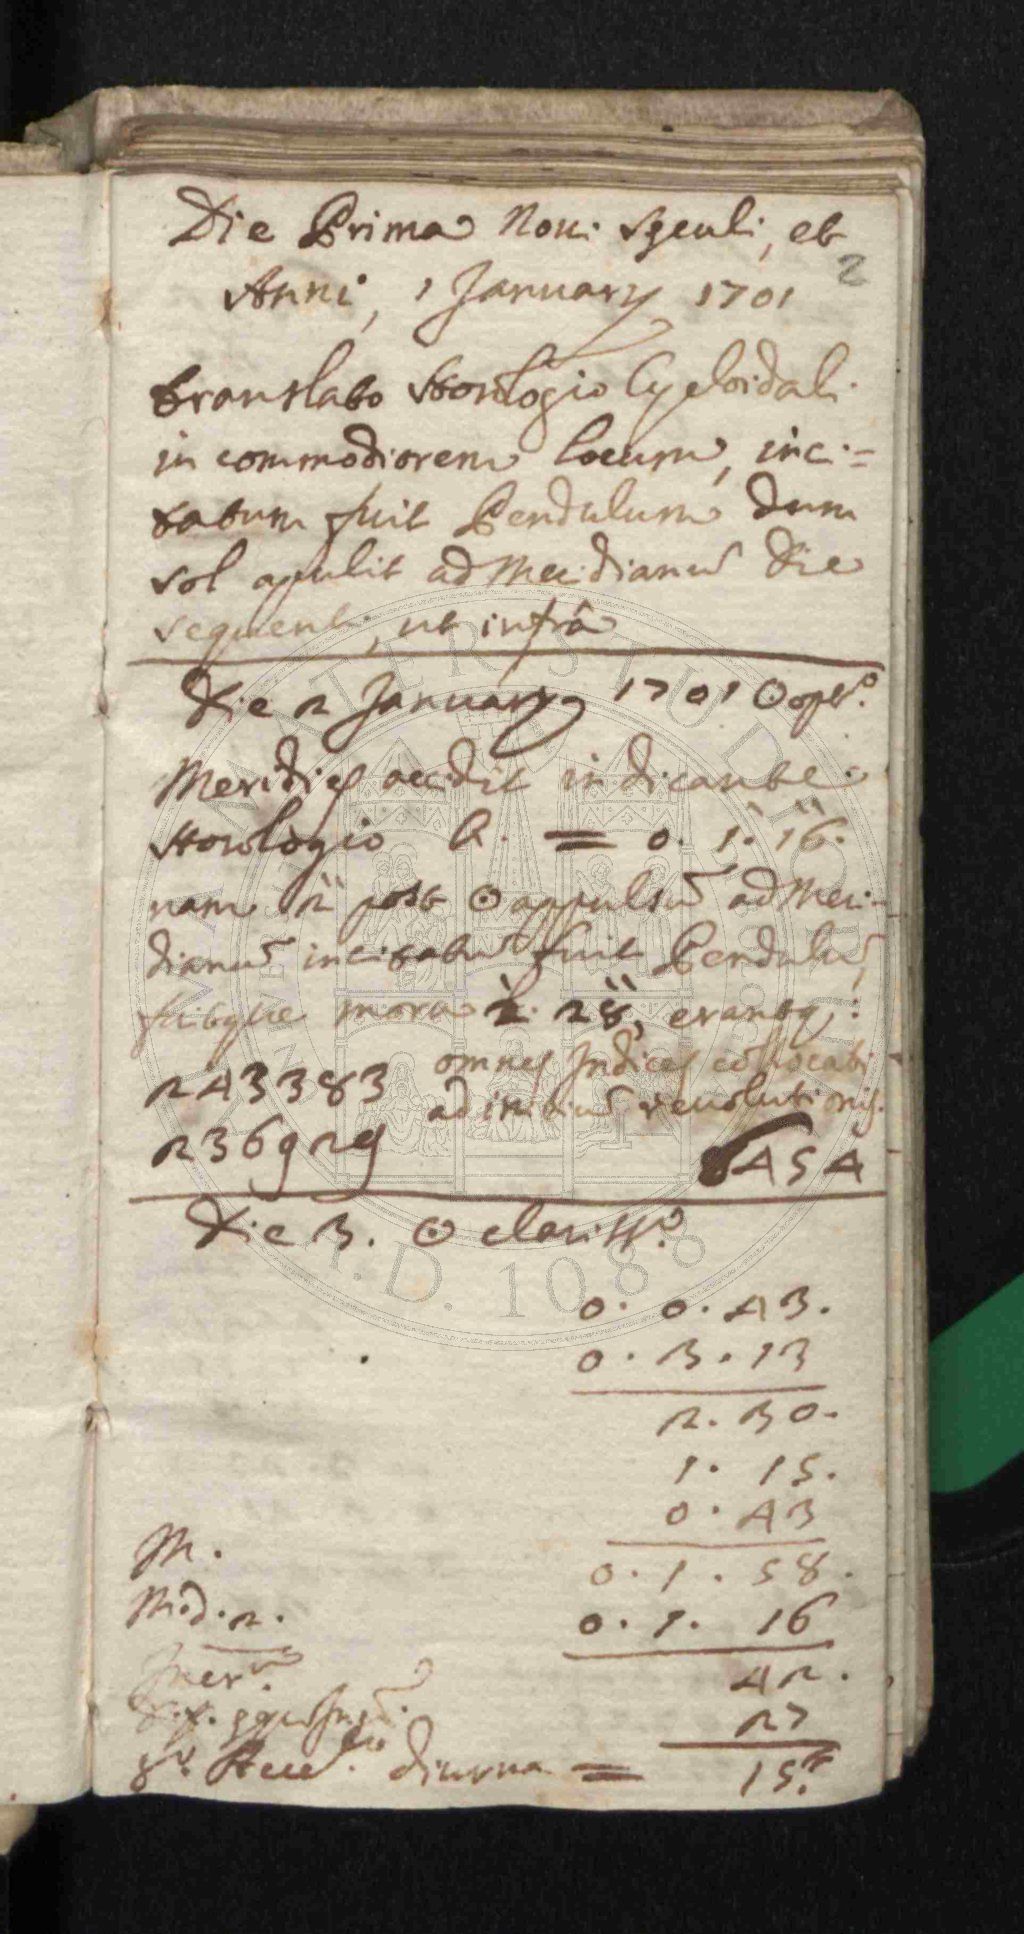 Die Prima Noui Sęculi, et
2
Anni, 1 Januarÿ 1701
translato Horologio Cycloidali
in commodiorem locum, inci=
tatum fuit Pendulum dum
Sol apulit ad Meridianũ die
sequenti, ut infrà
Die 2 Januarÿ 1701 ☉ opt.º
Meridies accidit indicante
Horologio h. = 0. 1. 16.
nam 2" post ☉ appulsũ ad Meri-
dianũ incitatũ fuit Pendulũ,
fuitque mora 28", erantq;:
omnes Indices collocati
243383 ad initiũ reuolutionis.
236929 6454
Die 3. ☉ clariss.º
0. 0. 43.
0. 3. 13
2. 30.
1. 15.
0. 43
M. 0. 1. 58.
M.d.2. 0. 1. 16
42.
27
Acce. diurna = 15."
ALMA MATER STUDIORUM
A.D. 1088